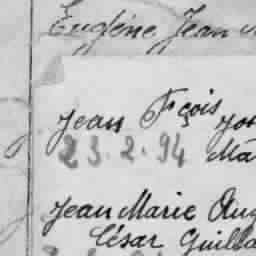 Eugène Jean
Jean Fçois
23.2.94 Ma
Jean Marie Aug
César Guilla